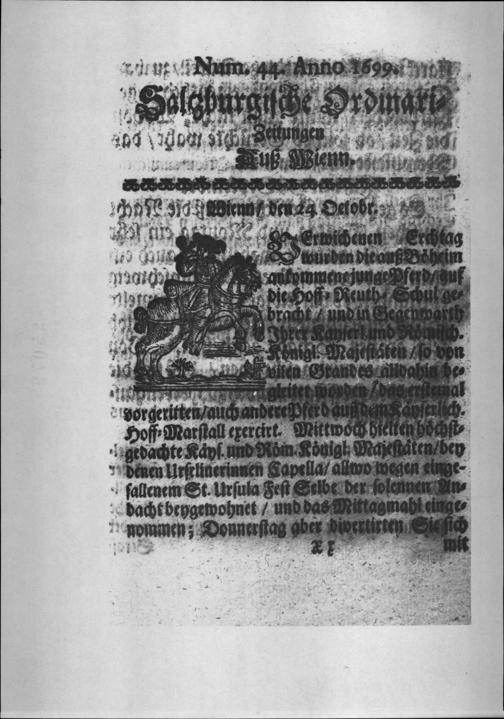 Num. 44. Anno 1699.
Saltzburgische Ordinari-
Zeitungen
Auß Wienn.
Wienn / den 24. Octobr.
VErwichenen Erchtag
wurden die auß Böheim
ankommene junge Pferd / auf
die Hoff-Reuth-Schul ge-
bracht / und in Gegenwarth
Ihrer Kayserl. und Römisch.
Königl. Majestäten / so von
vilen Grandes alldahin be-
gleitet worden / das erstemal
vorgeritten / auch andere Pferd auß dem Kayserlich.
Hoff-Marstall exercirt. Mittwoch hielten höchst-
gedachte Käys. und Röm. Königl. Majestäten / bey
denen Urselinerinnen Capella / allwo wegen einge-
fallenem St. Ursula Fest Selbe der solennen An-
dacht beygewohnet / und das Mittagmahl einge-
nommen; Donnerstag aber divertirten Sie sich
mit